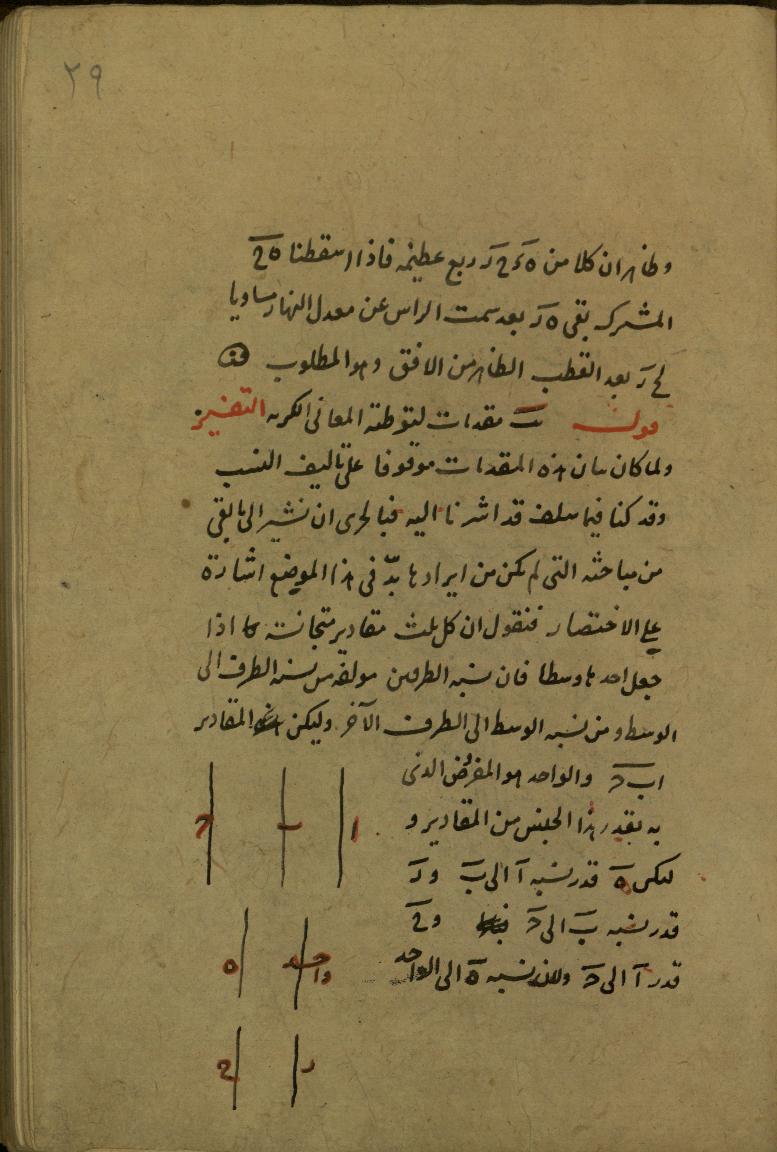 ٢٩
وظاهر ان كلا من ه ح ر ربع عظيمة فاذا اسقطنا ه ح
المشترك بقى ه ر بعد سمت الراس عن معدل النهار مساويا
ح ر بعد القطب الظاهر من الافق وهو المطلوب
قوله مقدمات لتوطئة المعانى الكرية التفسير
ولما كان بيان هذه المقدمات موقوفا على تاليف النسب
وقد كنا فيما سلف قد اشرنا اليه فبالحرى ان نشير الى ما بقى
من مباحثه التى لم يكن من ايرادها بدّ فى هذا الموضع اشارة
على الاختصار فنقول ان كل ثلث مقادير متجانسة اذا
جعل احدها وسطا فان نسبة الطرفين مولفة من نسبة الطرف الى
الوسط ومن نسبة الوسط الى الطرف الآخر وليكن المقادير
ا ب ح والواحد هو المفروض الذى
به يقدر هذا الجنس من المقادير و
ليكن ه قدر نسبة آ الى ب و ر
قدر نسبة ب الى ح و ح
قدر آ الى ح ولان نسبة ه الى الواحد
ا ب ح
واحد ه
ر ح